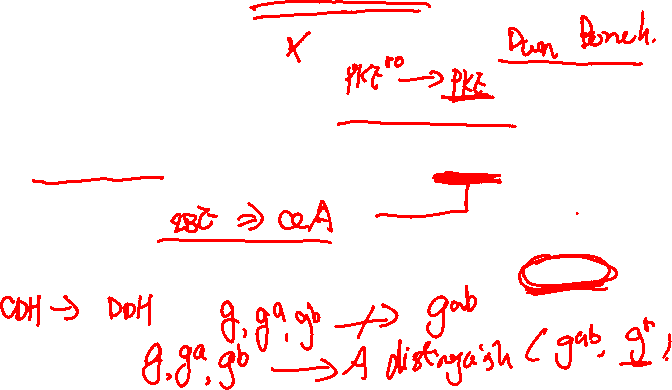 Dan Boneh.
X
PKE^ro → PKE
IBE ⇒ CCA
CDH → DDH g, g^a, g^b ↛ g^ab
g, g^a, g^b → A distinguish (g^ab, g^r,